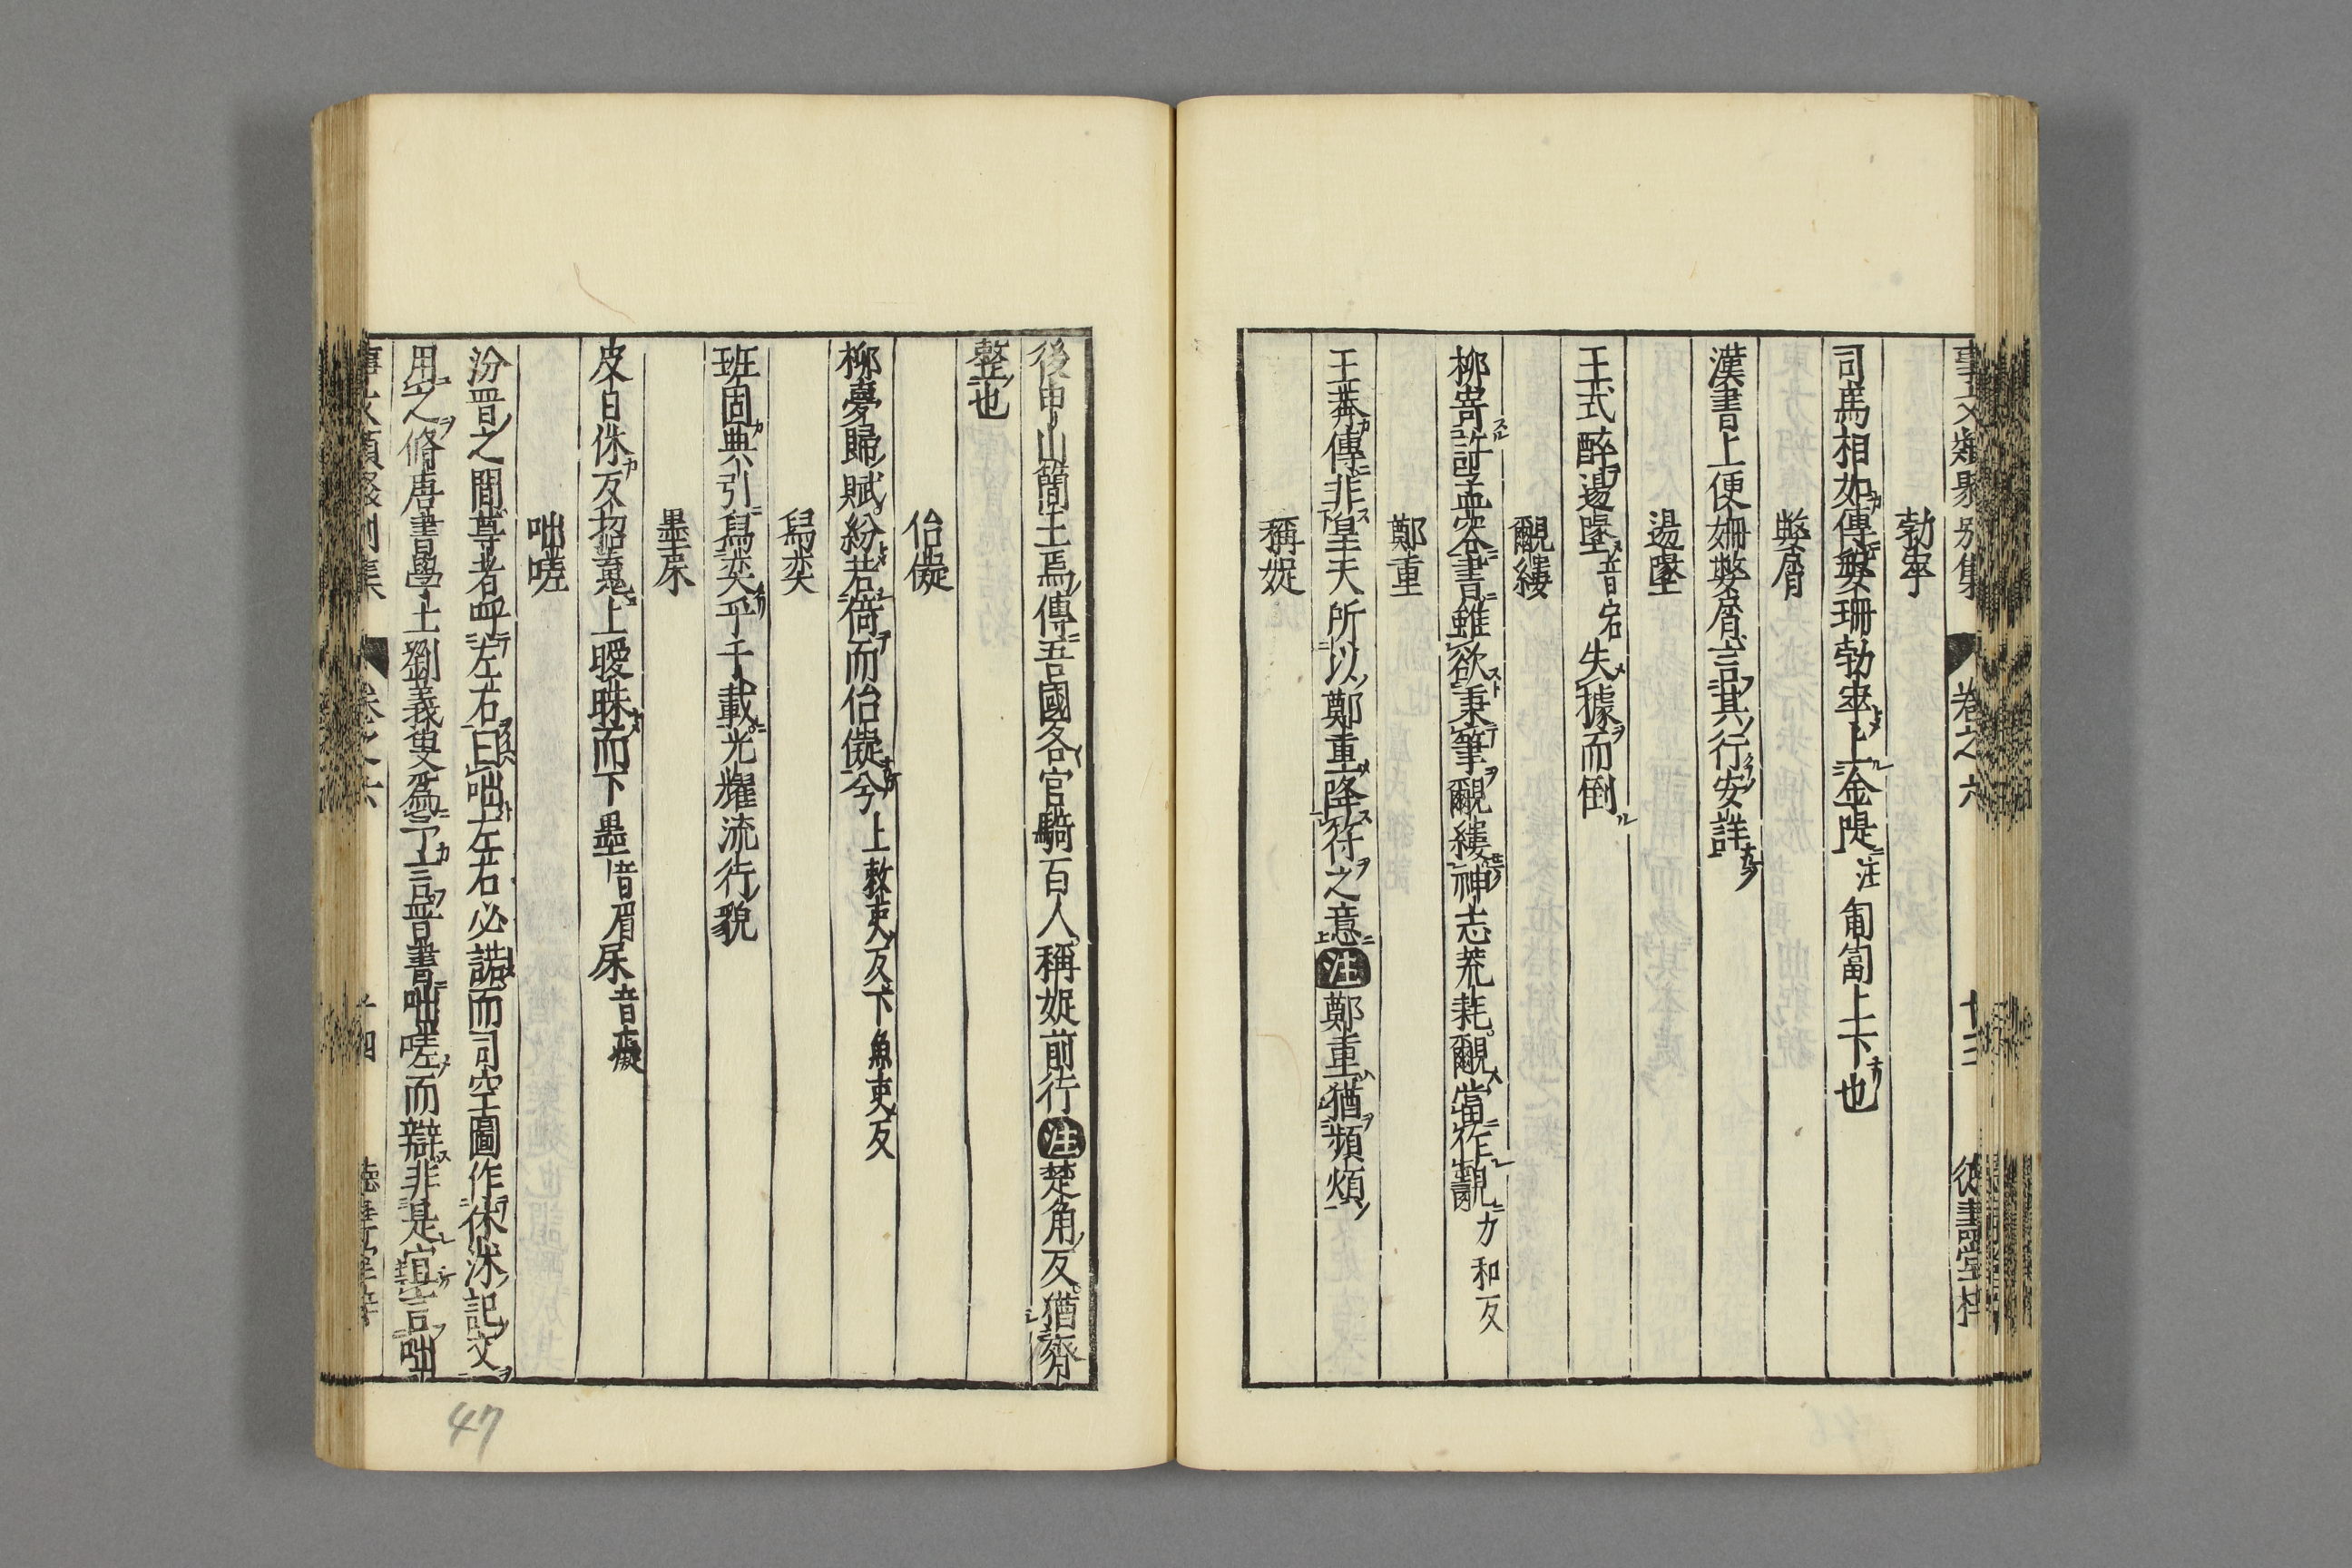 事文類聚別集 卷之六 廿三
勃窣
司馬相如傳媻珊勃窣上金隄注匍匐上下也
嫳屑
漢書上便姍嫳屑言其行安詳
逷墜
王式醉逷墜音宕失據而倒
覼縷
柳嵜許孟容書雖欲秉筆覼縷神志荒耗覼當作覶力和反
鄭重
王莽傳非皇天所以鄭重降符之意注鄭重猶頻煩
稱娖
後中山簡王焉傳吾國各官騎百人稱娖前行注楚角反猶齊
整也
佁儗
柳憂歸賦紛若倚而佁儗兮上敕吏反下魚吏反
舃奕
班固典引舃奕乎千載光耀流行貌
墨杘
皮日休反招䰟上曖昧而下墨音眉杘音癡
咄嗟
汾晉之間尊者呼左右曰咄左右必諾而司空圖作休休記文
用之脩唐書學士劉義叟爲予言晉書咄嗟而辯非是宜言咄